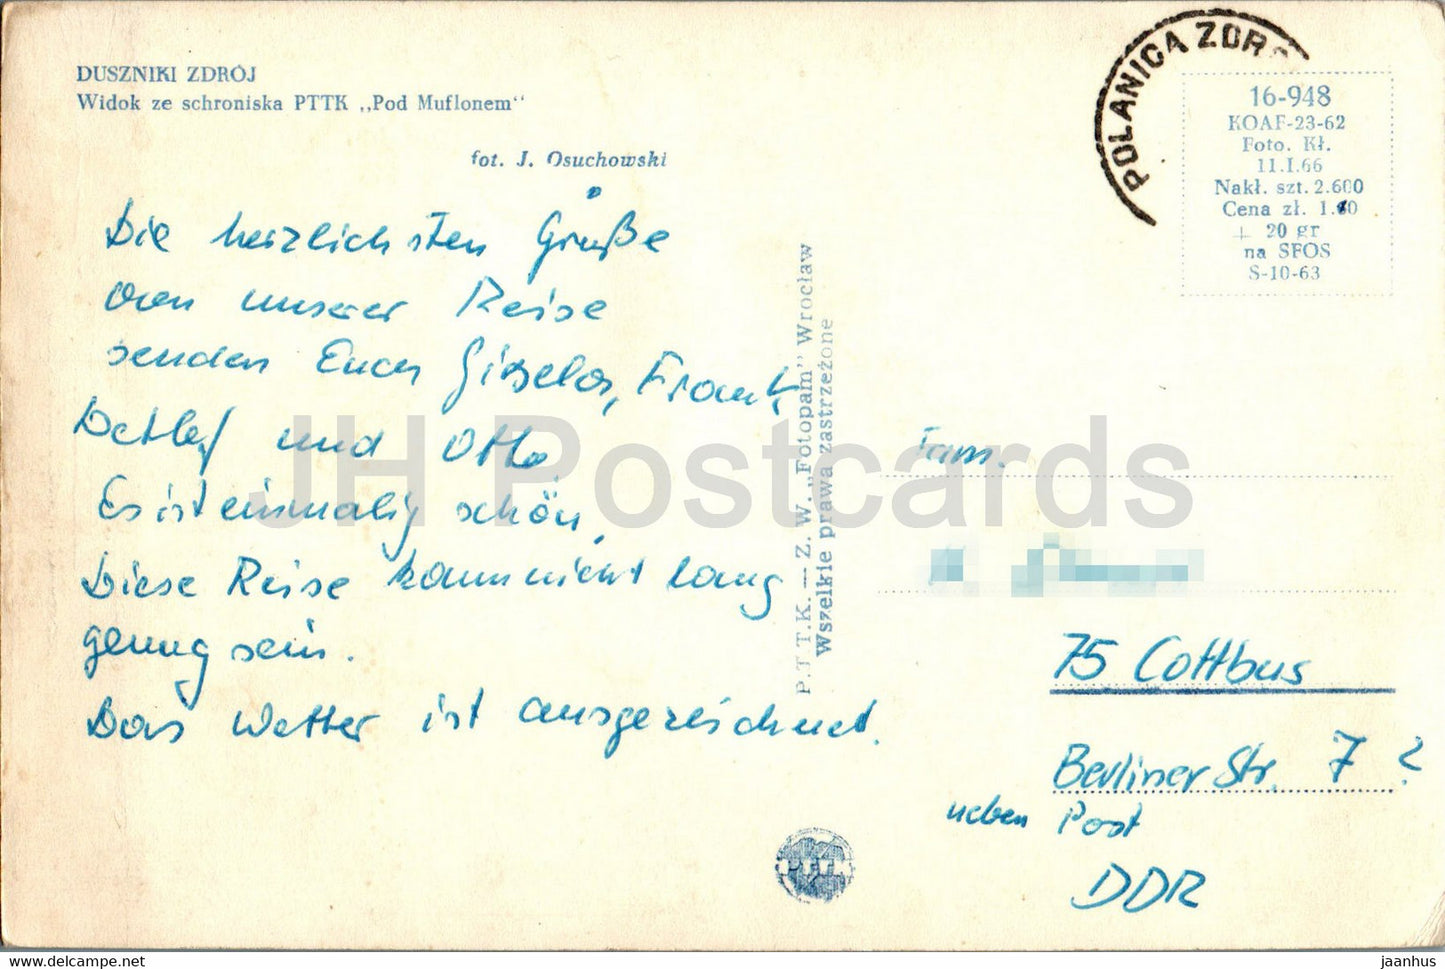 DUSZNIKI ZDRÓJ
Widok ze schroniska PTTK „Pod Muflonem“
fot. J. Osuchowski
POLANICA ZDR
16-948
KOAF-23-62
Foto. Kł.
11.I.66
Nakł. szt. 2.600
Cena zł. 1.60
+ 20 gr
na SFOS
S-10-63
Die herzlichsten Grüße
von unserer Reise
senden Euch Gisela, Frank,
Detlef und Otto.
Es ist einmalig schön,
Diese Reise kann nicht lang
genug sein.
Das Wetter ist ausgezeichnet.
P.T.T.K. — Z. W. „Fotopam” Wrocław
Wszelkie prawa zastrzeżone
PTTK
Fam.
75 Cottbus
Berliner Str. 7 ?
neben Post
DDR
JH Postcards
jaanhus